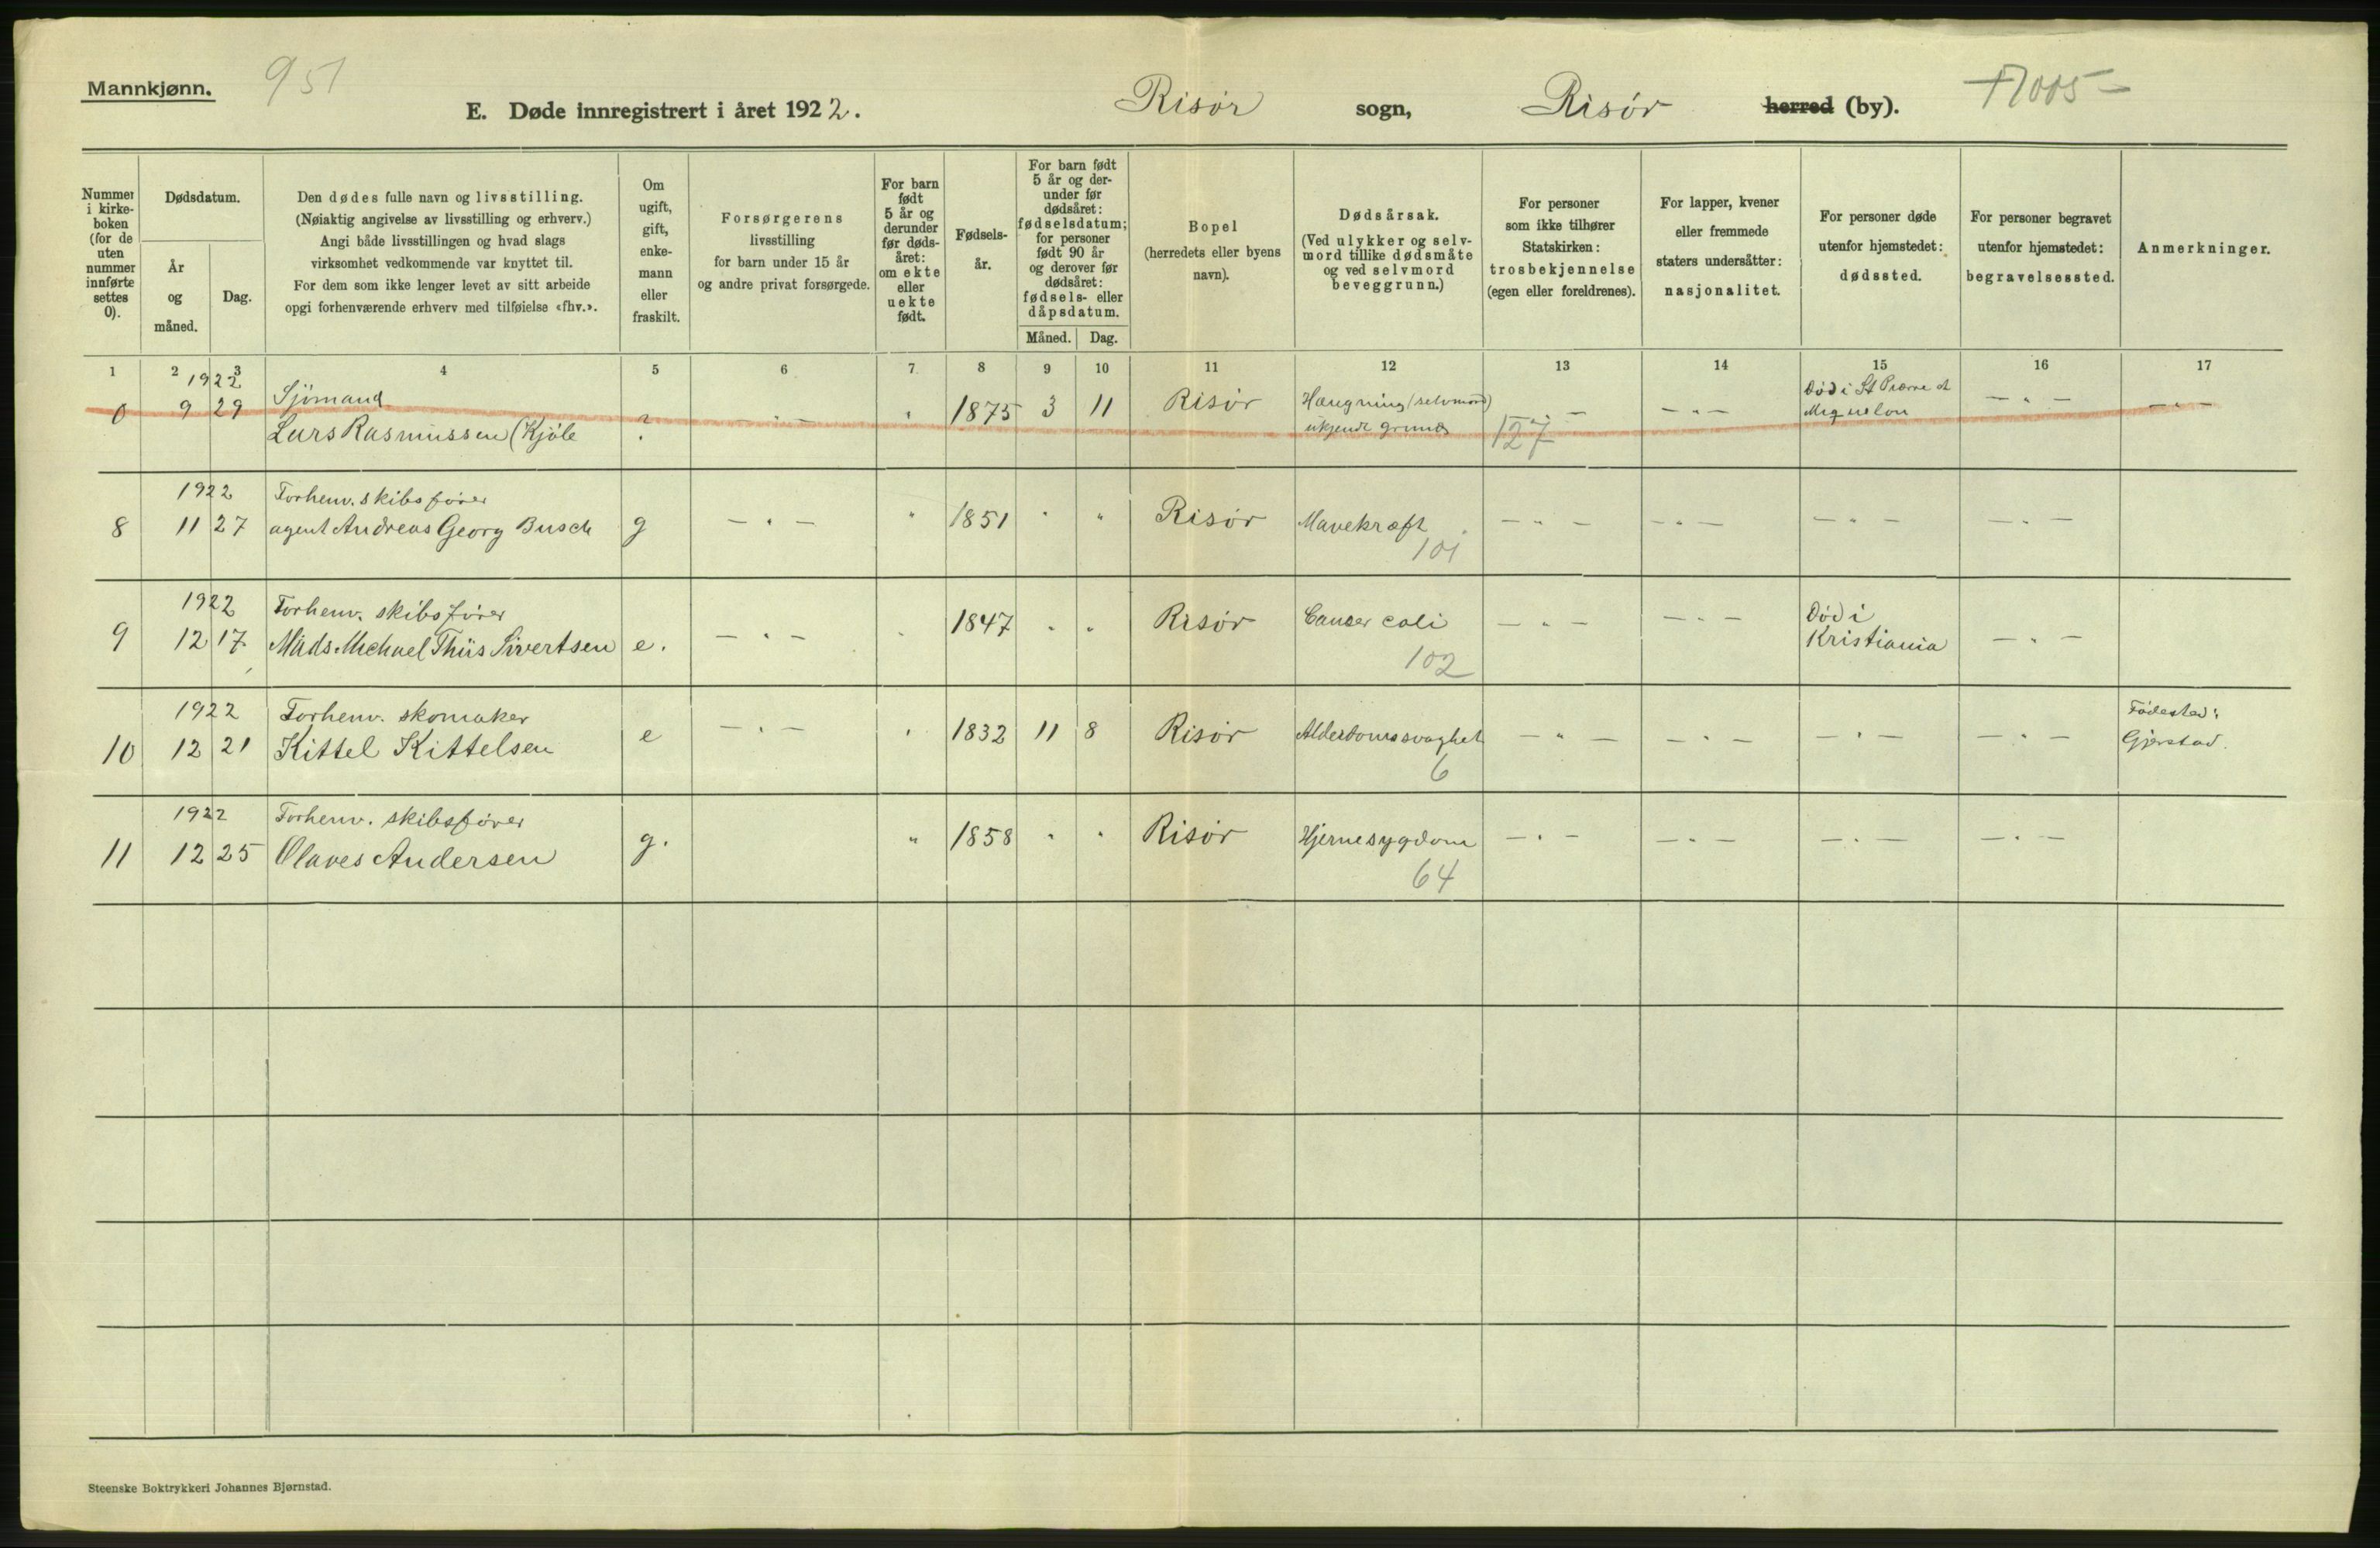 Mannkjønn. 951
E. Døde innregistrert i året 1922. Risør sogn, Risør herred (by). 17005-
Nummer i kirke-boken (for de uten nummer innførte settes 0).
Dødsdatum.
År og måned.
Dag.
Den dødes fulle navn og livsstilling.
(Nøiaktig angivelse av livsstilling og erhverv.)
Angi både livsstillingen og hvad slags
virksomhet vedkommende var knyttet til.
For dem som ikke lenger levet av sitt arbeide
opgi forhenværende erhverv med tilføielse «fhv.».
Om ugift, gift, enke-mann eller fraskilt.
Forsørgerens
livsstilling
for barn under 15 år
og andre privat forsørgede.
For barn født 5 år og derunder før døds-året: om ekte eller uekte født.
Fødsels-år.
For barn født 5 år og der-under før dødsåret: fødselsdatum; for personer født 90 år og derover før dødsåret: fødsels- eller dåpsdatum.
Måned. Dag.
Bopel
(herredets eller byens
navn).
Dødsårsak.
(Ved ulykker og selv-
mord tillike dødsmåte
og ved selvmord
beveggrunn.)
For personer
som ikke tilhører
Statskirken:
trosbekjennelse
(egen eller foreldrenes).
For lapper, kvener
eller fremmede
staters undersåtter:
nasjonalitet.
For personer døde
utenfor hjemstedet:
dødssted.
For personer begravet
utenfor hjemstedet:
begravelsessted.
Anmerkninger.
1 2 3 4 5 6 7 8 9 10 11 12 13 14 15 16 17
1922 Sjømand Hængning (selvmord) Død i St Pierre et
0 9 29 Lars Rasmussen (Kjøle ? - " - " 1875 3 11 Risør ukjendt grund 127 - " - - " - Miquelon - " - - " -
1922 Forhenv. skibsfører
8 11 27 agent Andreas Georg Busch g - " - " 1851 " " Risør Mavekræft - " - - " - - " - - " -
101
1922 Forhenv. skibsfører Død i
9 12 17 Mads Michael Thiis Sivertsen e. - " - " 1847 " " Risør Cancer coli - " - - " - Kristiania - " -
102
1922 Forhenv. skomaker Fødested:
10 12 21 Kittel Kittelsen e - " - " 1832 11 8 Risør Alderdomssvaghet - " - - " - - " - - " - Gjerstad.
6
1922 Forhenv. skibsfører
11 12 25 Olaves Andersen g. " 1858 " " Risør Hjernesygdom - " - - " - - " - - " -
64
Steenske Boktrykkeri Johannes Bjørnstad.